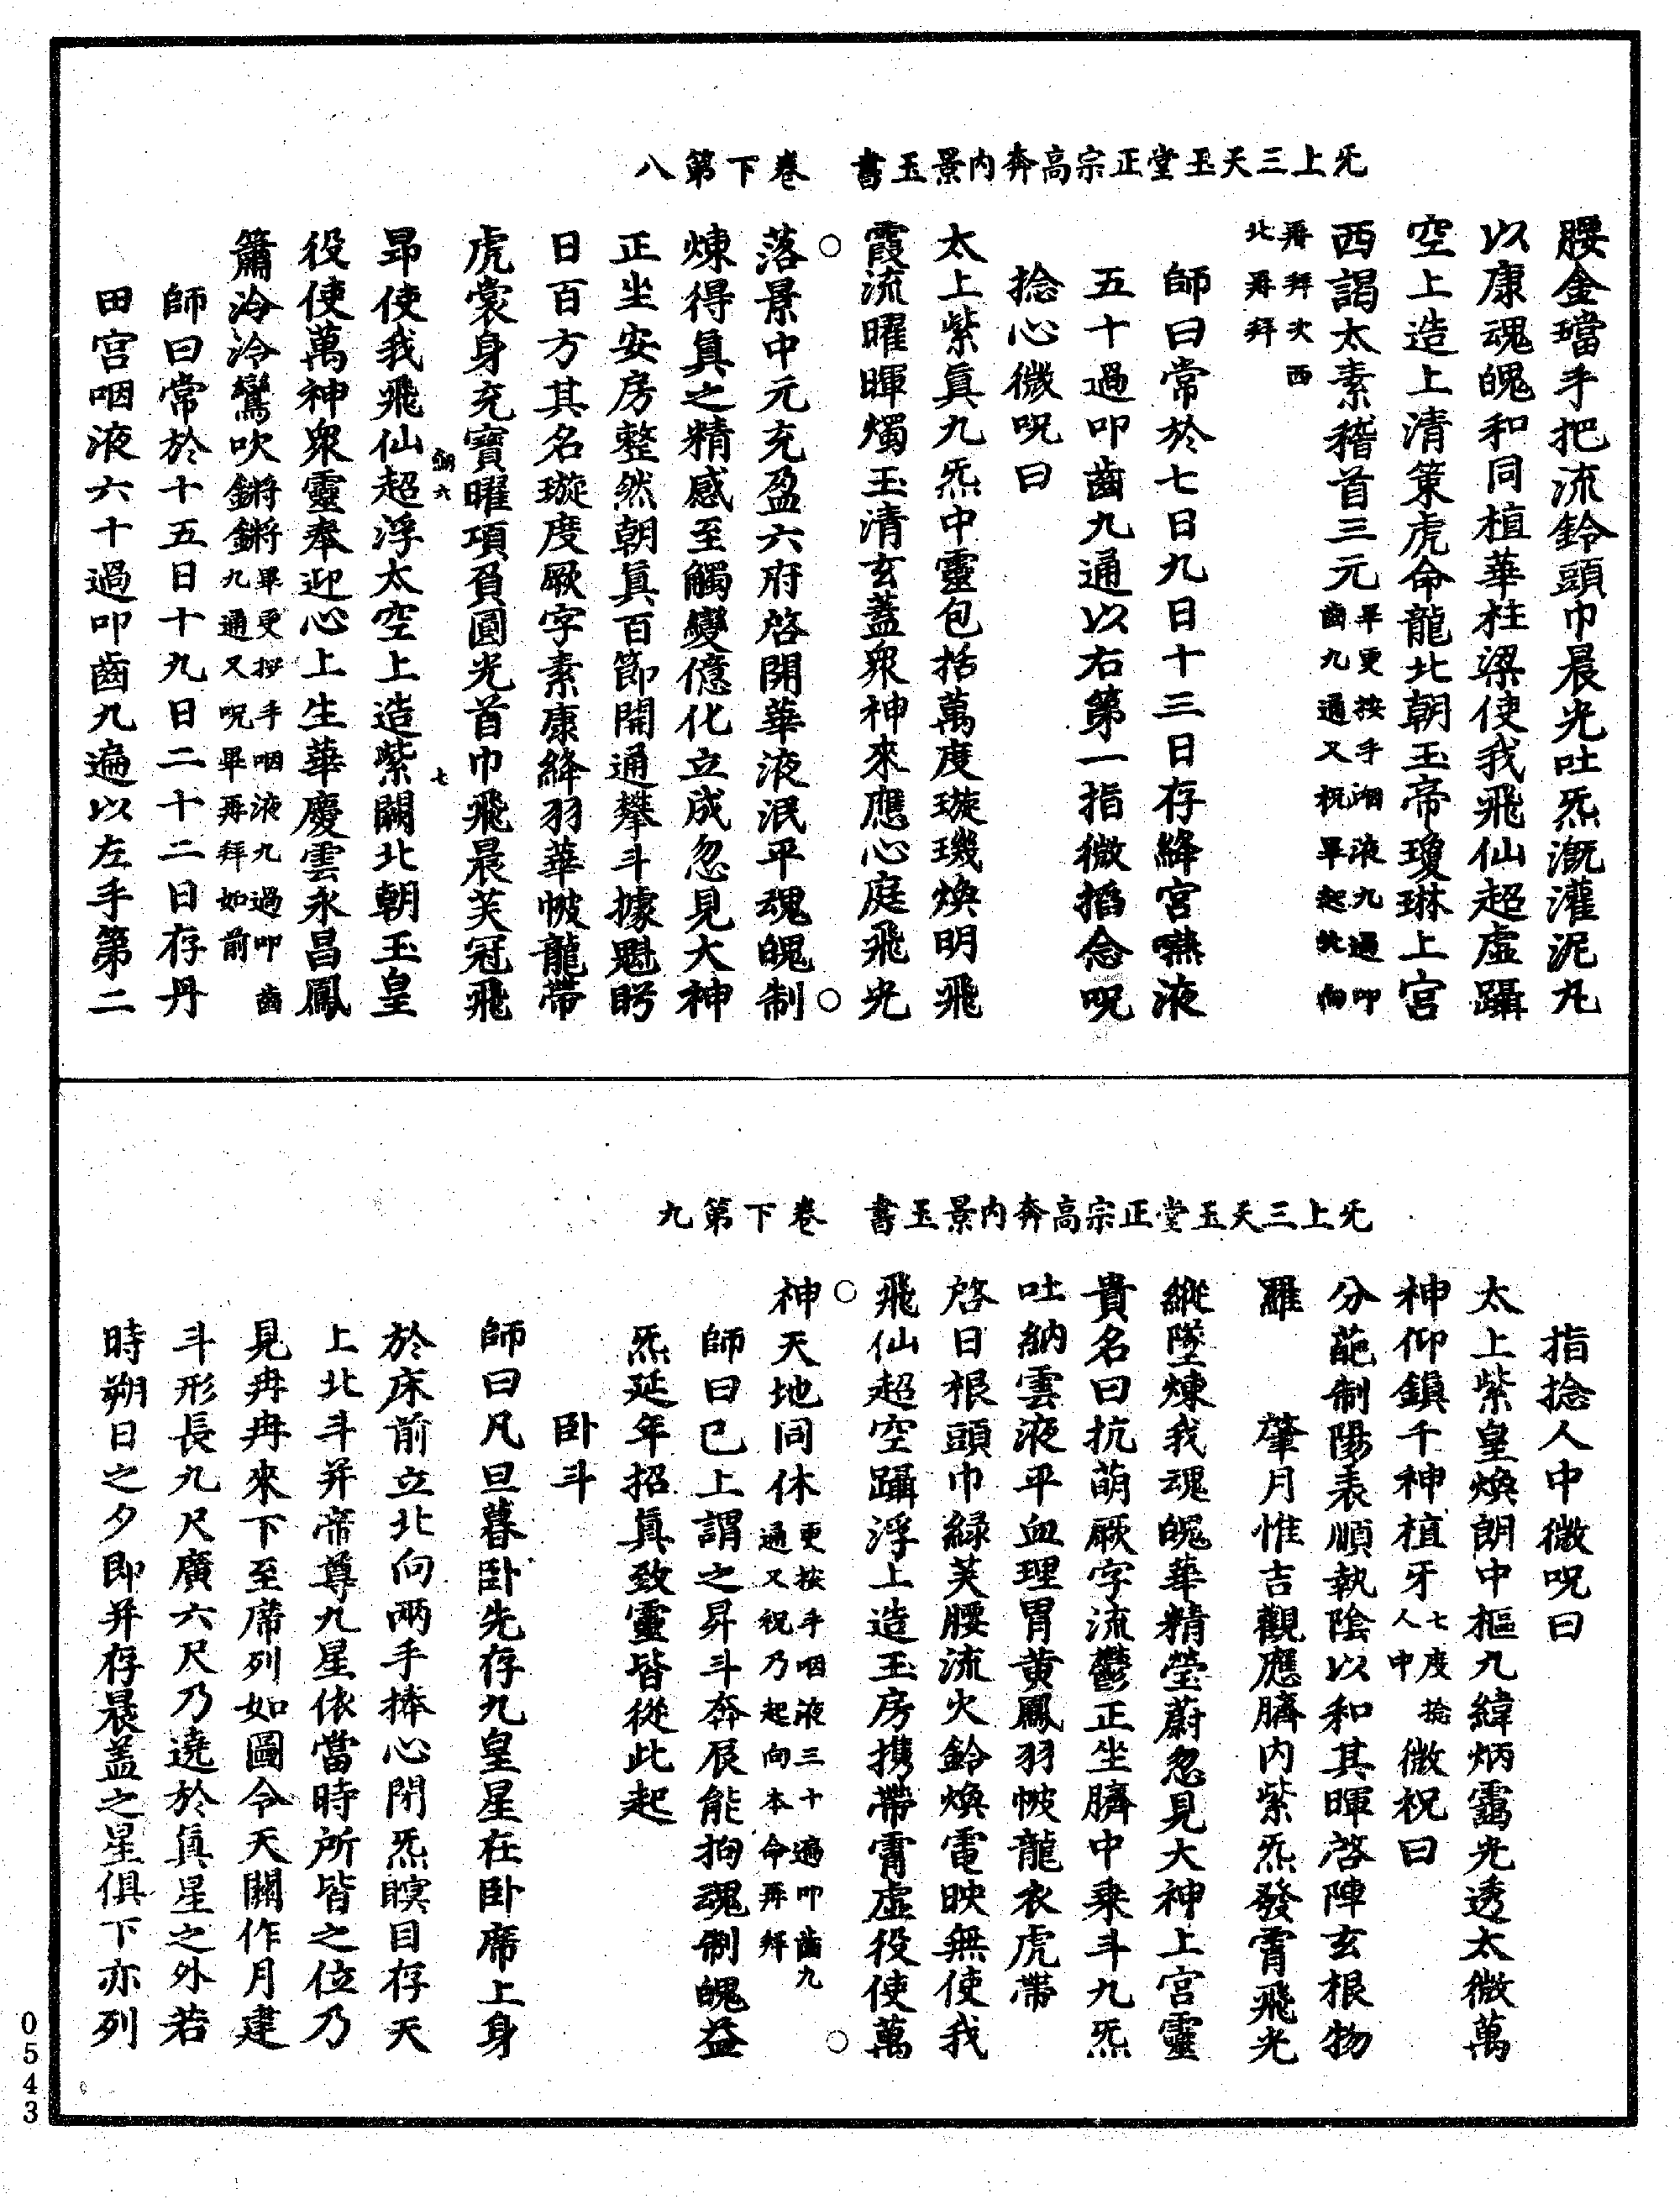 无上三天玉堂正宗高奔內景玉書　卷下第八
腰金璫手把流鈴頭巾晨光吐炁溉灌泥丸
以康魂魄和同植華柱梁使我飛仙超虛躡
空上造上清策虎命龍北朝玉帝瓊琳上宮
西謁太素稽首三元畢更按手咽液九過叩齒九通又祝畢起北向
再拜次西北再拜
師曰常於七日九日十三日存絳宮嚥液
五十過叩齒九通以右第一指微搯念呪
捻心微呪曰
太上紫真九炁中靈包括萬度璇璣煥明飛
霞流曜暉燭玉清玄蓋衆神來應心庭飛光
○落景中元充盈六府啓開華液泯平魂魄制○
煉得真之精感至觸變億化立成忽見大神
正坐安房整然朝真百節開通攀斗據魁眄
日百方其名璇度厥字素康絳羽華帔龍帶
虎裳身充寶曜項負圓光首巾飛晨芙冠飛
細六　七
昂使我飛仙超浮太空上造紫闕北朝玉皇
役使萬神衆靈奉迎心上生華慶雲永昌鳳
簫泠泠鸞吹鏘鏘畢更按手咽液九過叩齒九通又呪畢再拜如前
師曰常於十五日十九日二十二日存丹
田宮咽液六十過叩齒九遍以左手第二
无上三天玉堂正宗高奔內景玉書　卷下第九
指捻人中微呪曰
太上紫皇煥朗中樞九緯炳靄光透太微萬
神仰鎮千神植牙七度捻人中微祝曰
分葩制陽表順執陰以和其暉啓陣玄根物
羅　肇月惟吉觀應臍內紫炁發霄飛光
縱墜煉我魂魄華精瑩蔚忽見大神上宮靈
貴名曰抗萌厥字流鬱正坐臍中乘斗九炁
吐納雲液平血理胃黃鳳羽帔龍衣虎帶
啓日根頭巾緑芙腰流火鈴煥電映無使我
飛仙超空躡浮上造玉房携帶霄虛役使萬
○神天地同休更按手咽液三十遍叩齒九通又祝乃起向本命再拜○
師曰已上謂之昇斗奔辰能拘魂制魄益
炁延年招真致靈皆從此起
卧斗
師曰凡旦暮卧先存九皇星在卧席上身
於床前立北向兩手捧心閉炁瞑目存天
上北斗并帝尊九星依當時所皆之位乃
見冉冉來下至席列如圖令天關作月建
斗形長九尺廣六尺乃遶於真星之外若
時朔日之夕即并存晨盖之星俱下亦列
0543